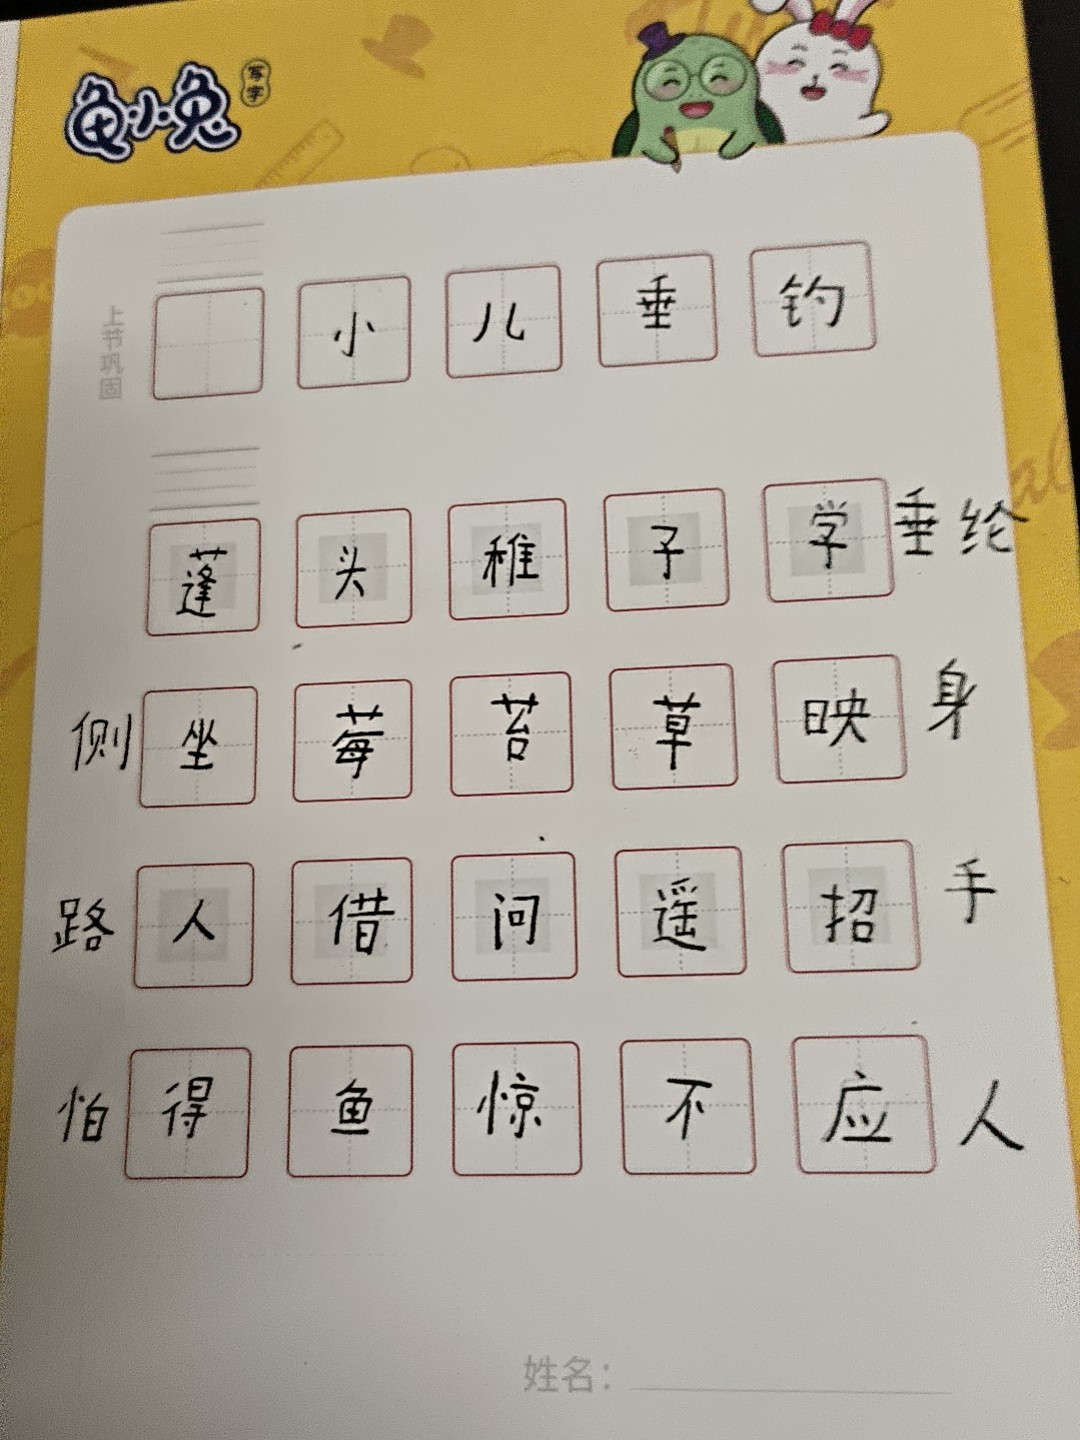 龟小兔写字
上节巩固
小儿垂钓
蓬头稚子学垂纶
侧坐莓苔草映身
路人借问遥招手
怕得鱼惊不应人
姓名：